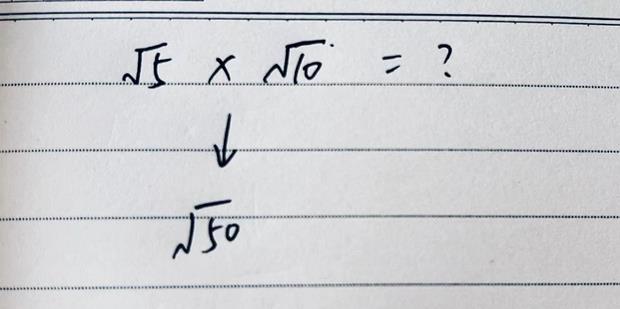 √5 × √10 = ?
↓
√50